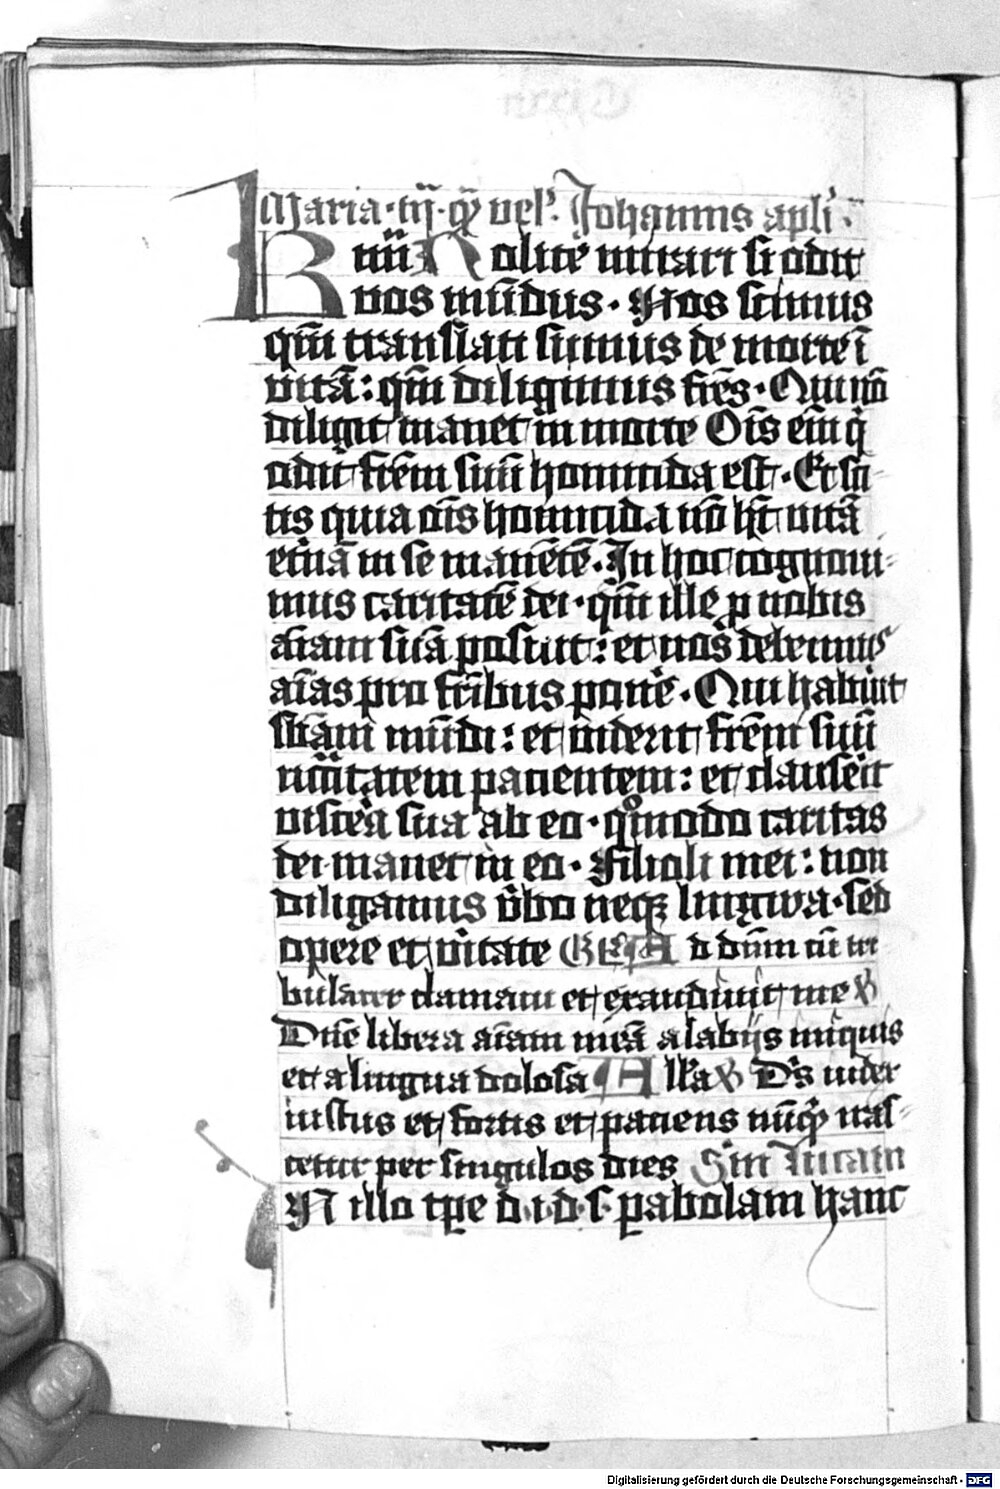 Maria · iij · qͣ vel'. Johannis apl'i ·
Bnn̄ Nolite mirari si odit
vos mūdus · Nos scimus
qm̄ translati sumus de morte ī
vitā : qm̄ diligimus fr̄es · Qui nō
diligit manet in morte Oīs eīm q̇
odit fr̄em suū homicida est · Et sci-
tis quia oīs homicida nō hȳt vitā
et̓nā in se manētē · In hoc cognoui-
mus caritatē dei · qm̄ ille p nobis
aīam suā posuit : et nos debemus
aīas pro fr̄ibus pone̓ · Qui habu̓it
sb̄am mūdi : et viderit fr̄em suū
nc̄citatem pacientem : et clause̓it
visce̓a sua ab eo · qͦmodo caritas
dei manet in eo · Filioli mei : non
diligamus v̓bo neqꝫ lingwa · sed
opere et v̓itate Gr̄ Ad dn̄m cū tri
bular̄er clamaui et exaudiuit me ℣
Dn̄e libera aīam meā a labijs iniquis
et a lingua dolosa All'a ℣ De̓s iudex
iustus et fortis et paciens nūqͥd iras-
cetur per singulos dies Sc̄m Lucam
N illo tp̄e d · i · d · s · pabolam hanc
Digitalisierung gefördert durch die Deutsche Forschungsgemeinschaft - DFG